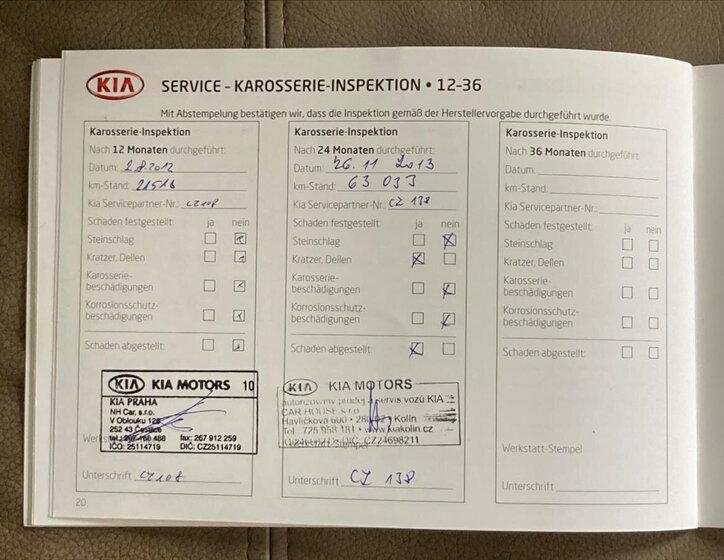 KIA SERVICE – KAROSSERIE-INSPEKTION • 12-36
Mit Abstempelung bestätigen wir, dass die Inspektion gemäß der Herstellervorgabe durchgeführt wurde.
Karosserie-Inspektion
Nach 12 Monaten durchgeführt:
Datum: 2.8.2012
km-Stand: 21516
Kia Servicepartner-Nr.: CZ108
Schaden festgestellt: ja nein
Steinschlag
Kratzer, Dellen
Karosserie-
beschädigungen
Korrosionsschutz-
beschädigungen
Schaden abgestellt:
KIA KIA MOTORS 10
KIA PRAHA
NH Car, s.r.o.
V Oblouku
252 43
fax: 267 912 259
IČO: 25114719 DIČ: CZ25114719
Unterschrift CZ108
20
Karosserie-Inspektion
Nach 24 Monaten durchgeführt:
Datum: 26.11 2013
km-Stand: 63 033
Kia Servicepartner-Nr.: CZ 138
Schaden festgestellt: ja nein
Steinschlag
Kratzer, Dellen
Karosserie-
beschädigungen
Korrosionsschutz-
beschädigungen
Schaden abgestellt:
KIA KIA MOTORS
autorizovaný prodej a servis vozů KIA
CAR HOUSE s.r.o.
Havlíčkova 600 • Kolín
Tel 725 958 181 • www.kiakolin.cz
DIČ: CZ24698211
Unterschrift CZ 138
Karosserie-Inspektion
Nach 36 Monaten durchgeführt:
Datum:
km-Stand:
Kia Servicepartner-Nr.:
Schaden festgestellt: ja nein
Steinschlag
Kratzer, Dellen
Karosserie-
beschädigungen
Korrosionsschutz-
beschädigungen
Schaden abgestellt:
Werkstatt-Stempel
Unterschrift